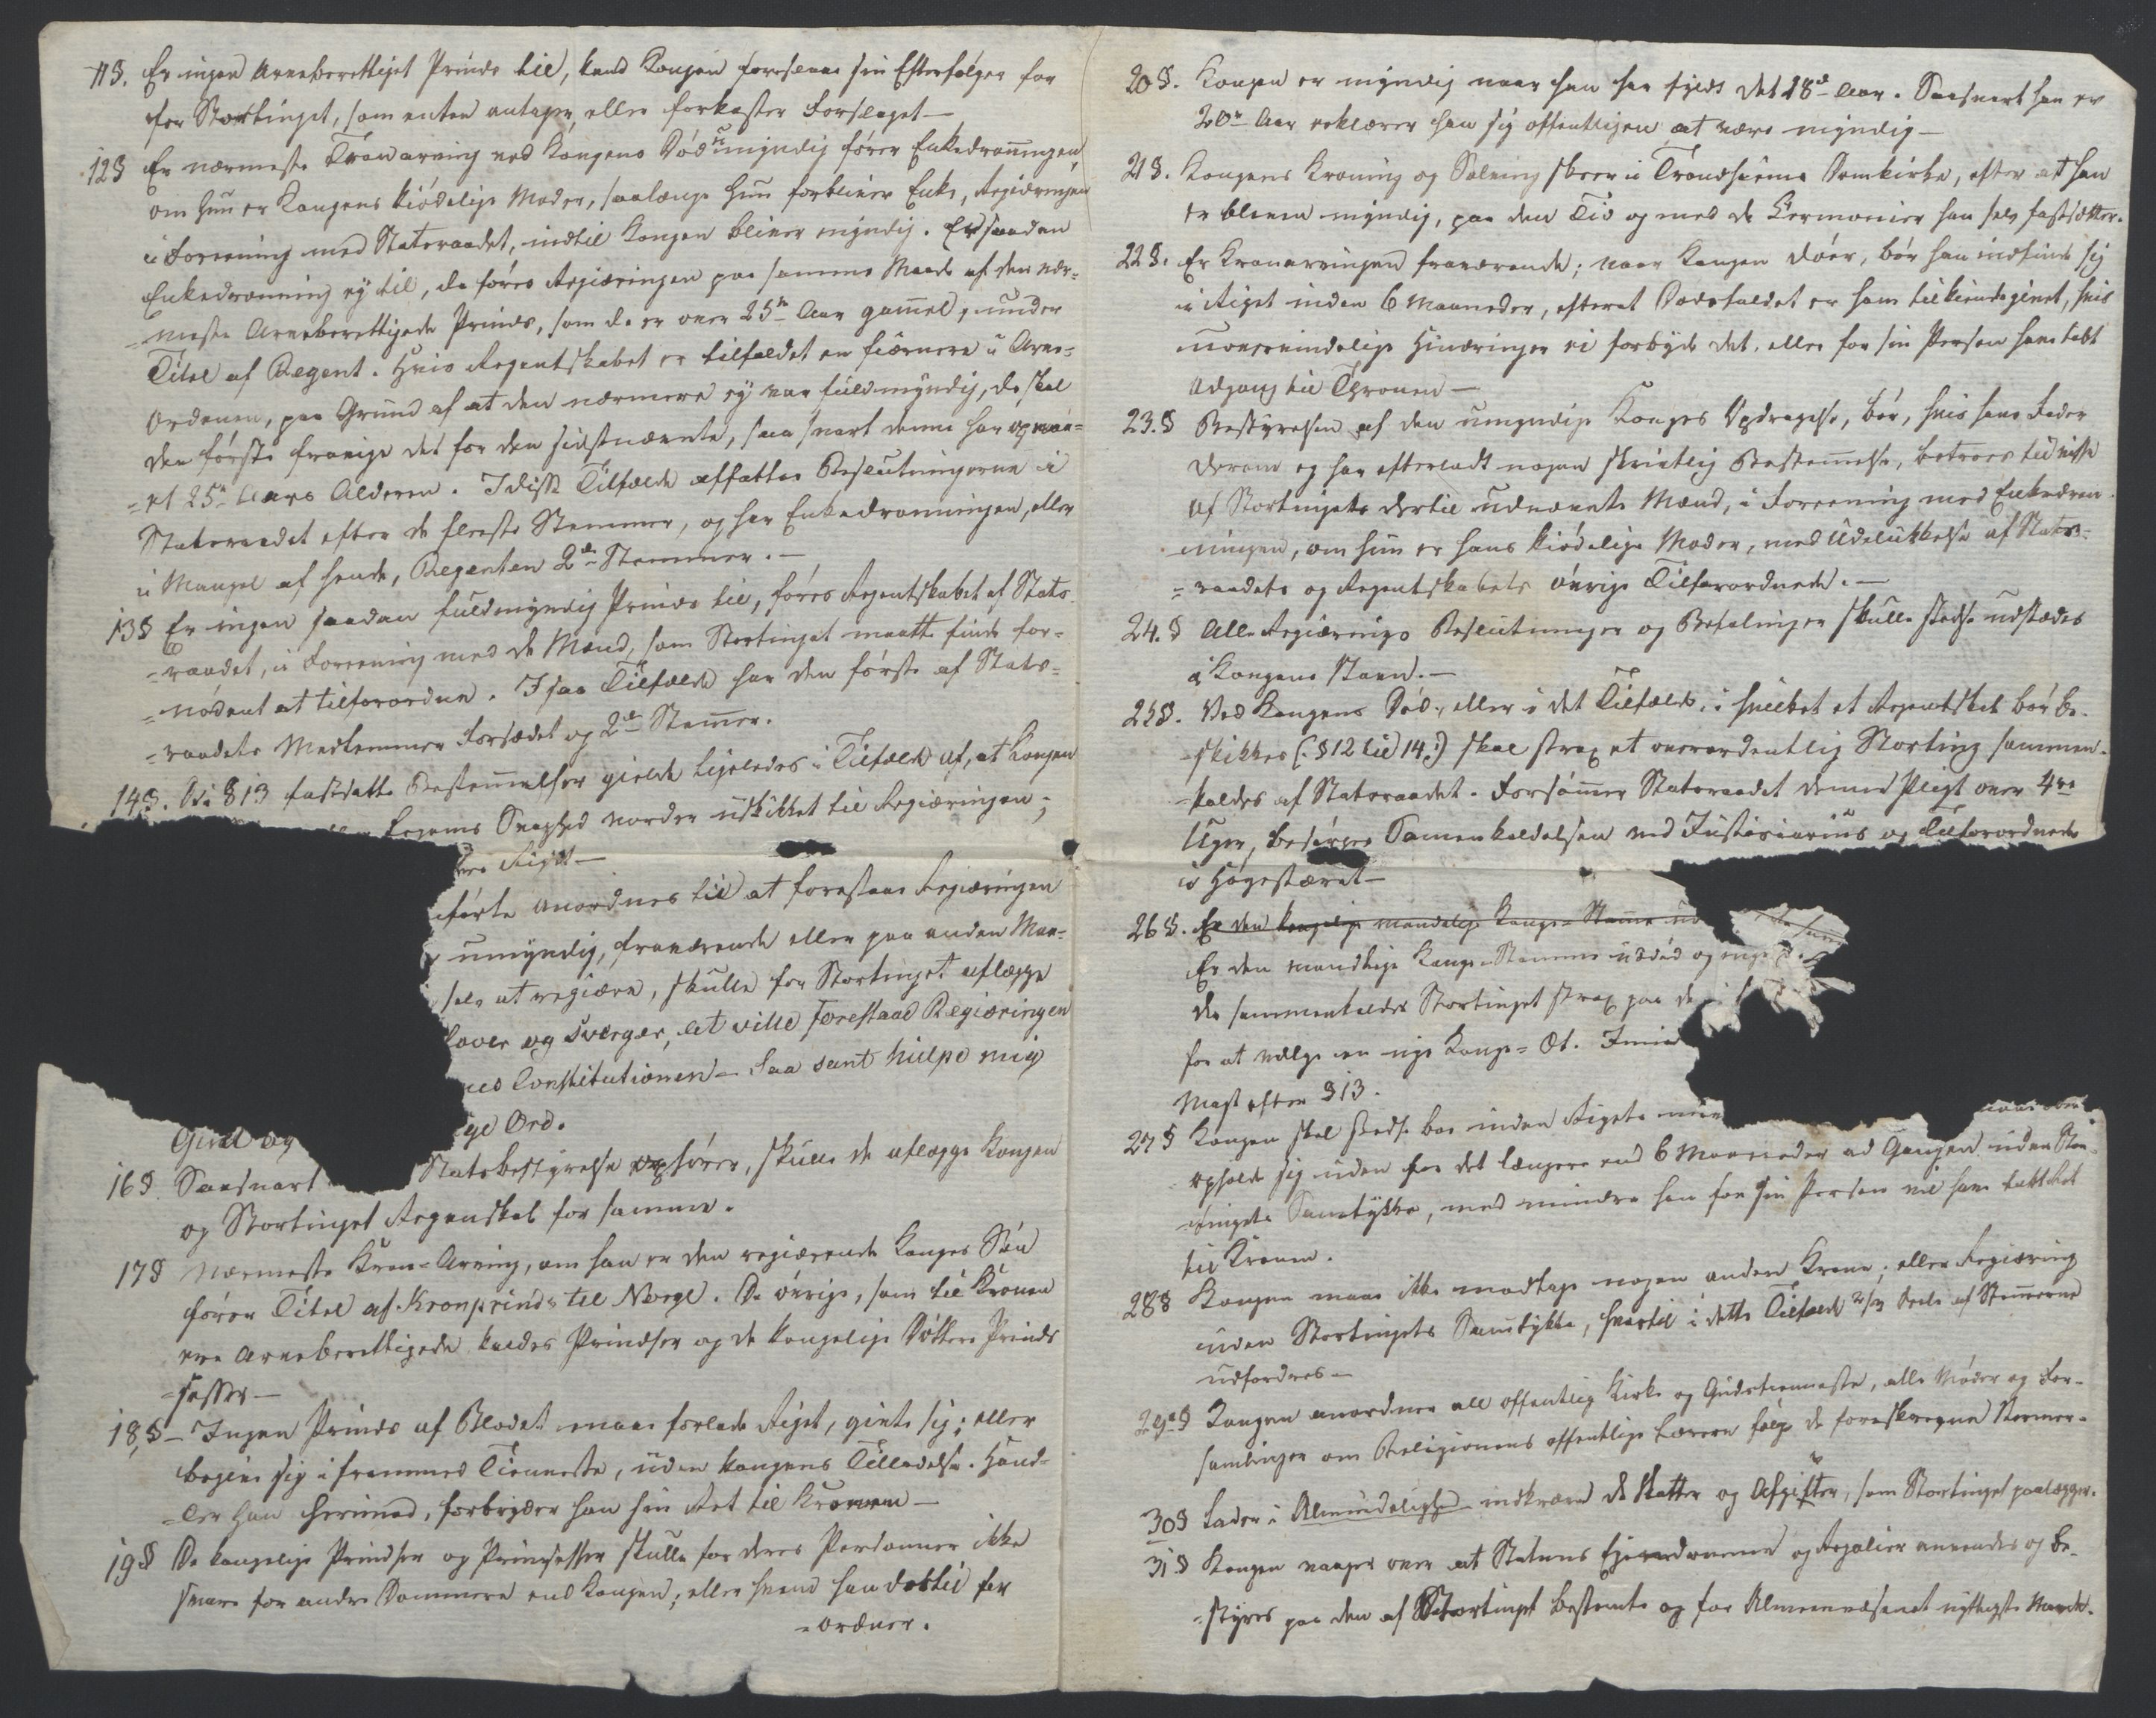 11§. Er ingen Arveberettiget Prinds til, kand Kongen foreslaae sin Efterfølger for
for Stortinget, som enten antager, eller forkaster Forslaget —
12§ Er nærmeste Tronarving ved Kongens Død umyndig fører Enkedronningen,
om hun er Kongens kiødelige Moder, saalænge hun forbliver Enke, Regieringen
i Foreening med Statsraadet, indtil Kongen bliver myndig. Er saadan
Enkedronning ej til, da føres Regieringen paa samme Maade af den nær-
=meste Arveberettigede Prinds, som da er over 25de Aar gammel, under
Titel af Regent. Hvis Regentskabet er tilfaldet en fiernere i Arve-
Ordenen, paa Grund af at den nærmere ej var fuldmyndig, da skal
den første fravige det for den sidstnævnte, saa snart denne har opnaa-
=et 25de Aars Alderen. I disse Tilfælde affattes Beslutningerne i
Statsraadet efter de fleeste Stemmer, og har Enkedronningen, eller
i Mangel af hende, Regenten 2de Stemmer. —
13§ Er ingen saadan fuldmyndig Prinds til, føres Regentskabet af Stats-
=raadet, i Foreening med de Mænd, som Stortinget maatte finde for-
=nødent at tilforordne. I saa Tilfælde har den første af Stats-
=raadets Medlemmer Forsædet og 2de Stemmer.
14§. De i §13 fastsatte Bestemmelser gielde ligeledes i Tilfælde af, at Kongen
eller Legems Svaghed vorder uskikket til Regieringen;
Riget —
første anordnes til at forestaae Regieringen
umyndig, fraværende eller paa anden Maa-
selv at regiere, skulle for Stortinget aflægge
lover og sværger, at ville forestaae Regieringen
Constitutionen — saa sant hielpe mig
Gud og ge Ord.
16§ Saasnart Statsbestyrelse ophører, skulle de aflægge Kongen
og Stortinget Regenskab for samme.
17§ Nærmeste Kron-Arving, om han er den regierende Konges Søn
fører Titel af Kronprinds til Norge. De øvrige, som til Kronen
ere Arveberettigede kaldes Prindser og de kongelige Døttre Prinds
=sesser —
18§ — Ingen Prinds af Blodet maae forlade Riget, givte sig; eller
begive sig i fremmed Tienneste, uden kongens Tilladelse. Hand-
=ler han herimod, forbryder han sin Ret til Kronen —
19§ De kongelige Prindser og Prinsesser skulle for deres Personner ikke
svare for andre Dommere end Kongen; eller hvem han dertil for
=ordner.
20§. Kongen er myndig naar han har fyldt det 18de Aar. Saasnart han er
20de Aar erklærer han sig offentligen at være myndig —
21§. Kongens Kroning og Salving skeer i Trondhiems Domkirke, efter at han
er bleven myndig, paa den Tid og med de Ceremonier han selv fastsætter.
22§. Er Kronarvingen fraværende; naar Kongen døer, bør han indfinde sig
i Riget inden 6 Maaneder, efterat Dødsfaldet er ham tilkiendegivet, hvis
uovervindelige Hindringer ei forbyde det, eller for sin Person have tabt
Adgang til Thronen —
23.§ Bestyrelsen af den umyndige Konges Opdragelse, bør, hvis hans Fader
derom ej har efterladt nogen skrivtlig Bestemmelse, betroes til visse
af Stortinget dertil udnævnte Mænd, i Foreening med Enkedron
ningen, om hun er hans kiødelige Moder, med Udelukkelse af Stats-
=raadets og Regentskabets øvrige Tilforordnede. —
24.§ Alle Regierings Beslutninger og Befalinger skulle stedse udstædes
i Kongens Navn. —
25§. Ved Kongens Død, eller i det Tilfælde, i hvilket et Regentskab bør be-
=skikkes (:§12 til 14:) skal strax et overordentlig Storting sammen-
=kaldes af Statsraadet. Forsømmer Statsraadet denne Pligt over 4re
Uger, besørges Sammenkaldelsen ved Justitiarius og Tilforordnede
i Høyesteret —
26§. Er den kongelige mandelige Konge-Stamme ud
Er den mandlige Konge-Stamme uddød og ingen
da sammenkaldes Stortinget strax paa de
for at vælge en nye Konge-Æt. Imid
Magt efter §13.
27§ Kongen skal stedse boe inden Rigets
opholde sig uden for det længere end 6 Maaneder ad Gangen uden Stor-
tingets Samtykke, med mindre han for sin Person vil have tabt Ret
til Kronen.
28§ Kongen maae ikke modtage nogen anden Krone, eller Regiering
uden Stortingets Samtykke, hvortil i dette Tilfælde 2/3 Deele af Stemmerne
udfordres —
29e§ Kongen anordner all offentlig Kirke og Gudstienneste, alle Møder og For-
samlinger om Religionens offentlige Lærere følge de foreskrevne Normer.
30§ Lader i Almindelighed indkræve de Skatter og Afgifter, som Stortinget paalægger.
31§ Kongen vaager over at Statens Eiendomme og Regalier anvendes og be-
=styres paa den af Stortinget bestemte og for Almeenvæsenet nyttigste Maade.